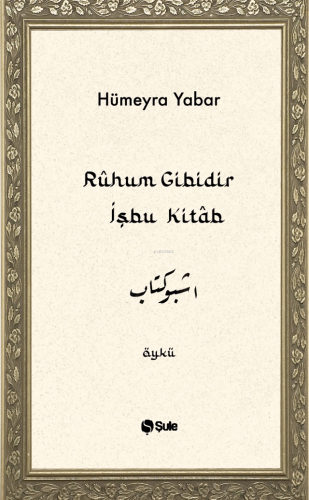 Hümeyra Yabar
Rûhum Gibidir
İşbu Kitâb
اشبو كتاب
öykü
Şule